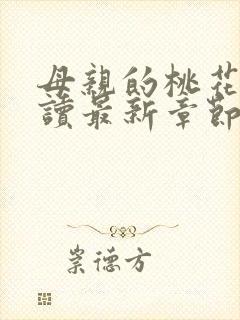 母親的桃花
讀最新章節
崇德方